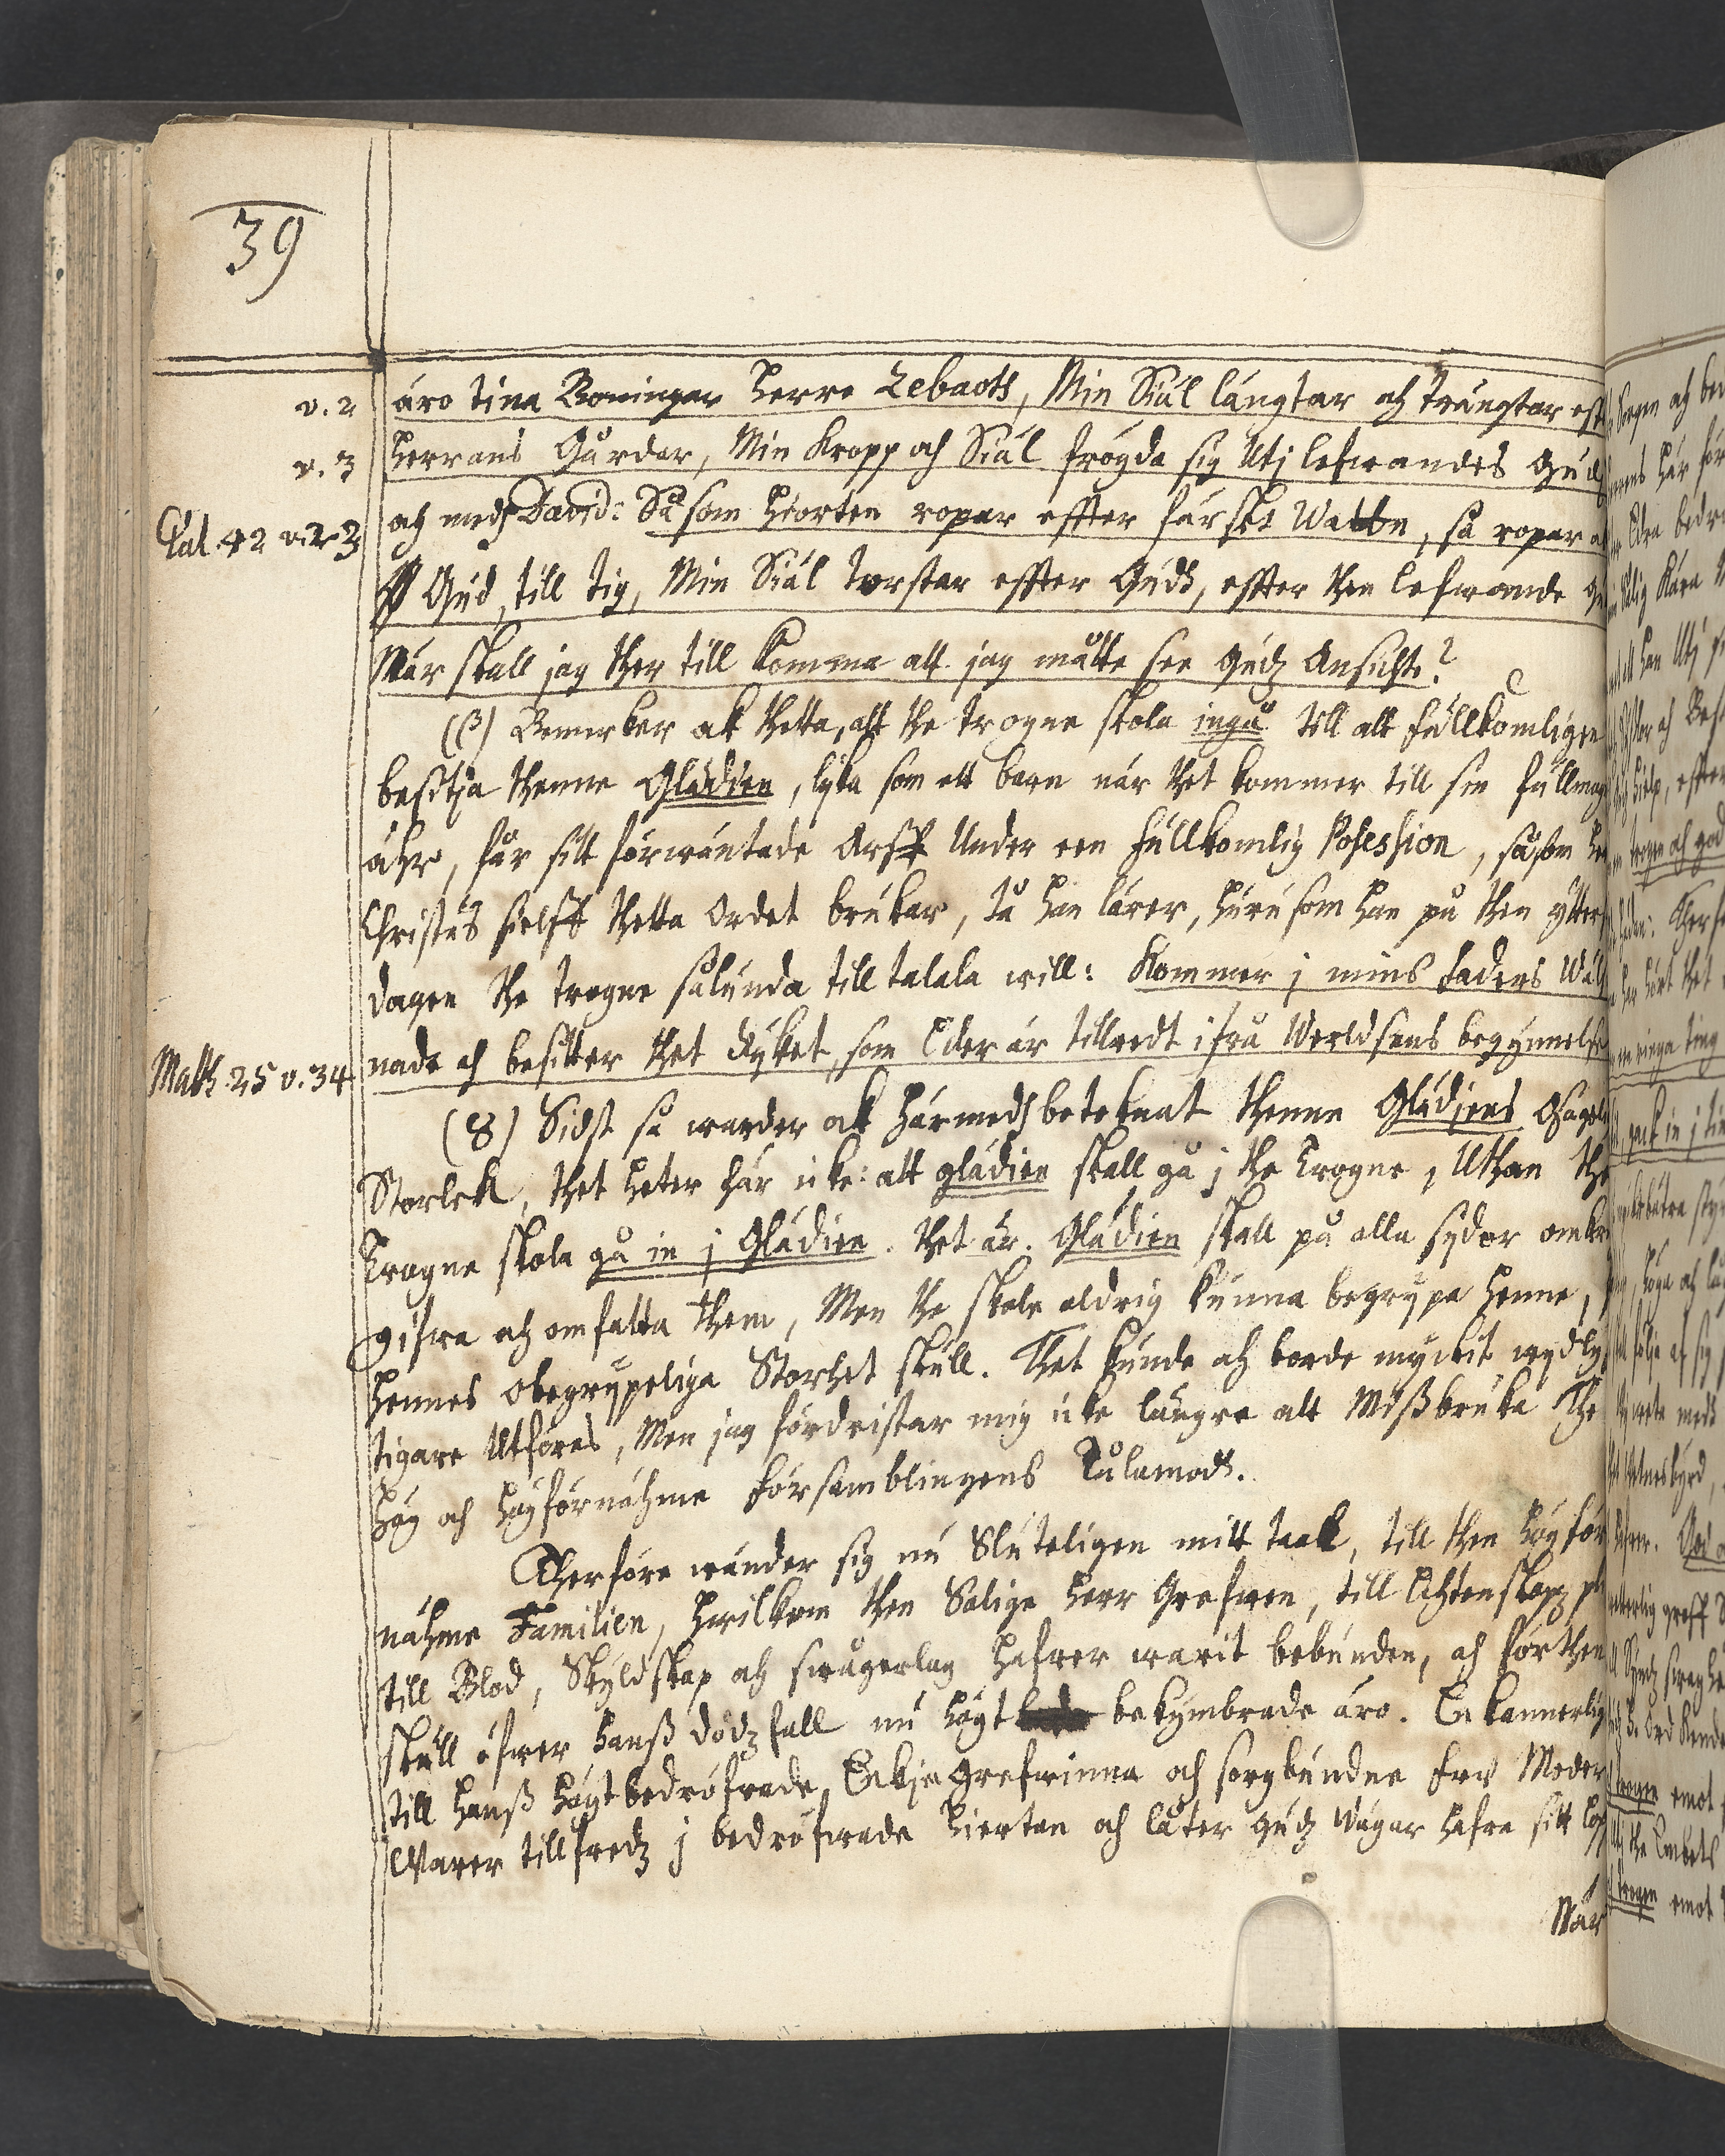 39
v. 2 äro tina Boningar Herre Zebaoth, Min Siäl längtar och trängtar eft
v. 3 Herrans Gårdar, Min kropp och Siäl frögda sig Utj lefwandes Gudh
Psal. 42 v. 2. 3 och medh David: Såsom Hiorten ropar effter färskt Wattn, så ropar
Gud, till tig, Min Siäl torstar effter Gudh, effter then lefwande
När skall jag ther till komma att jag måtte see Gudz Ansichte?
(β) Bemerker ok thetta, att the trogne skola ingå till att fullkomligen
besittia thenne Glädien, lyka som ett barn när thet kommer till sin fullmyn
åhr, får sitt förwäntade Arff Under een fullkomlig Posession, såsom
Christus sielff thetta Ordet brukar, tå han lärer, huru som han på then ytter
dagen the trogne sålunda till talala will: Kommer j mins Faders Wäl
Math. 25 v. 34 nade och besitter thet Ryket, som Eder är tillredt ifrå Werldsens begynnelse
(8) Sidst så warder ok härmedh beteknat thenne Glädjens
Storlek, thet heter här icke: att glädien skall gå j the Trogne, Uthan the
Trogne skola gå in j Glädien. Thet är. Glädien skall på alla sydor omkr
gifwa och omfatta them, Men the skole aldrig kunna begrypa henne,
Hennes obegrypeliga Storhet skull. Thet kunde och borde myckit wydly
tigare Utföres, Men jag fördristar mig icke längre att Mißbruka The
Hög och Högförnähme Församblingens Tålamodh.
Therföre wänder sig nu Sluteligen mitt taal, till then Höyför
nähme Familien, Hwilkom then Salige Herr Grefwen, till Ächtenskapp
till Blod, Skyldskap och swågerlag hafwer warit bebunden, och för then
skull öfwer hanß dödzfall nu högt bekymbrade äro. Enkannerlig
till Hanß Högtbedröfwade Enkje Grefwinna och sorgbundne Fru Moder
Warer tillfredz j bedröfwade Hiertan och låter Gudz Wägar hafwa sitt lop
När